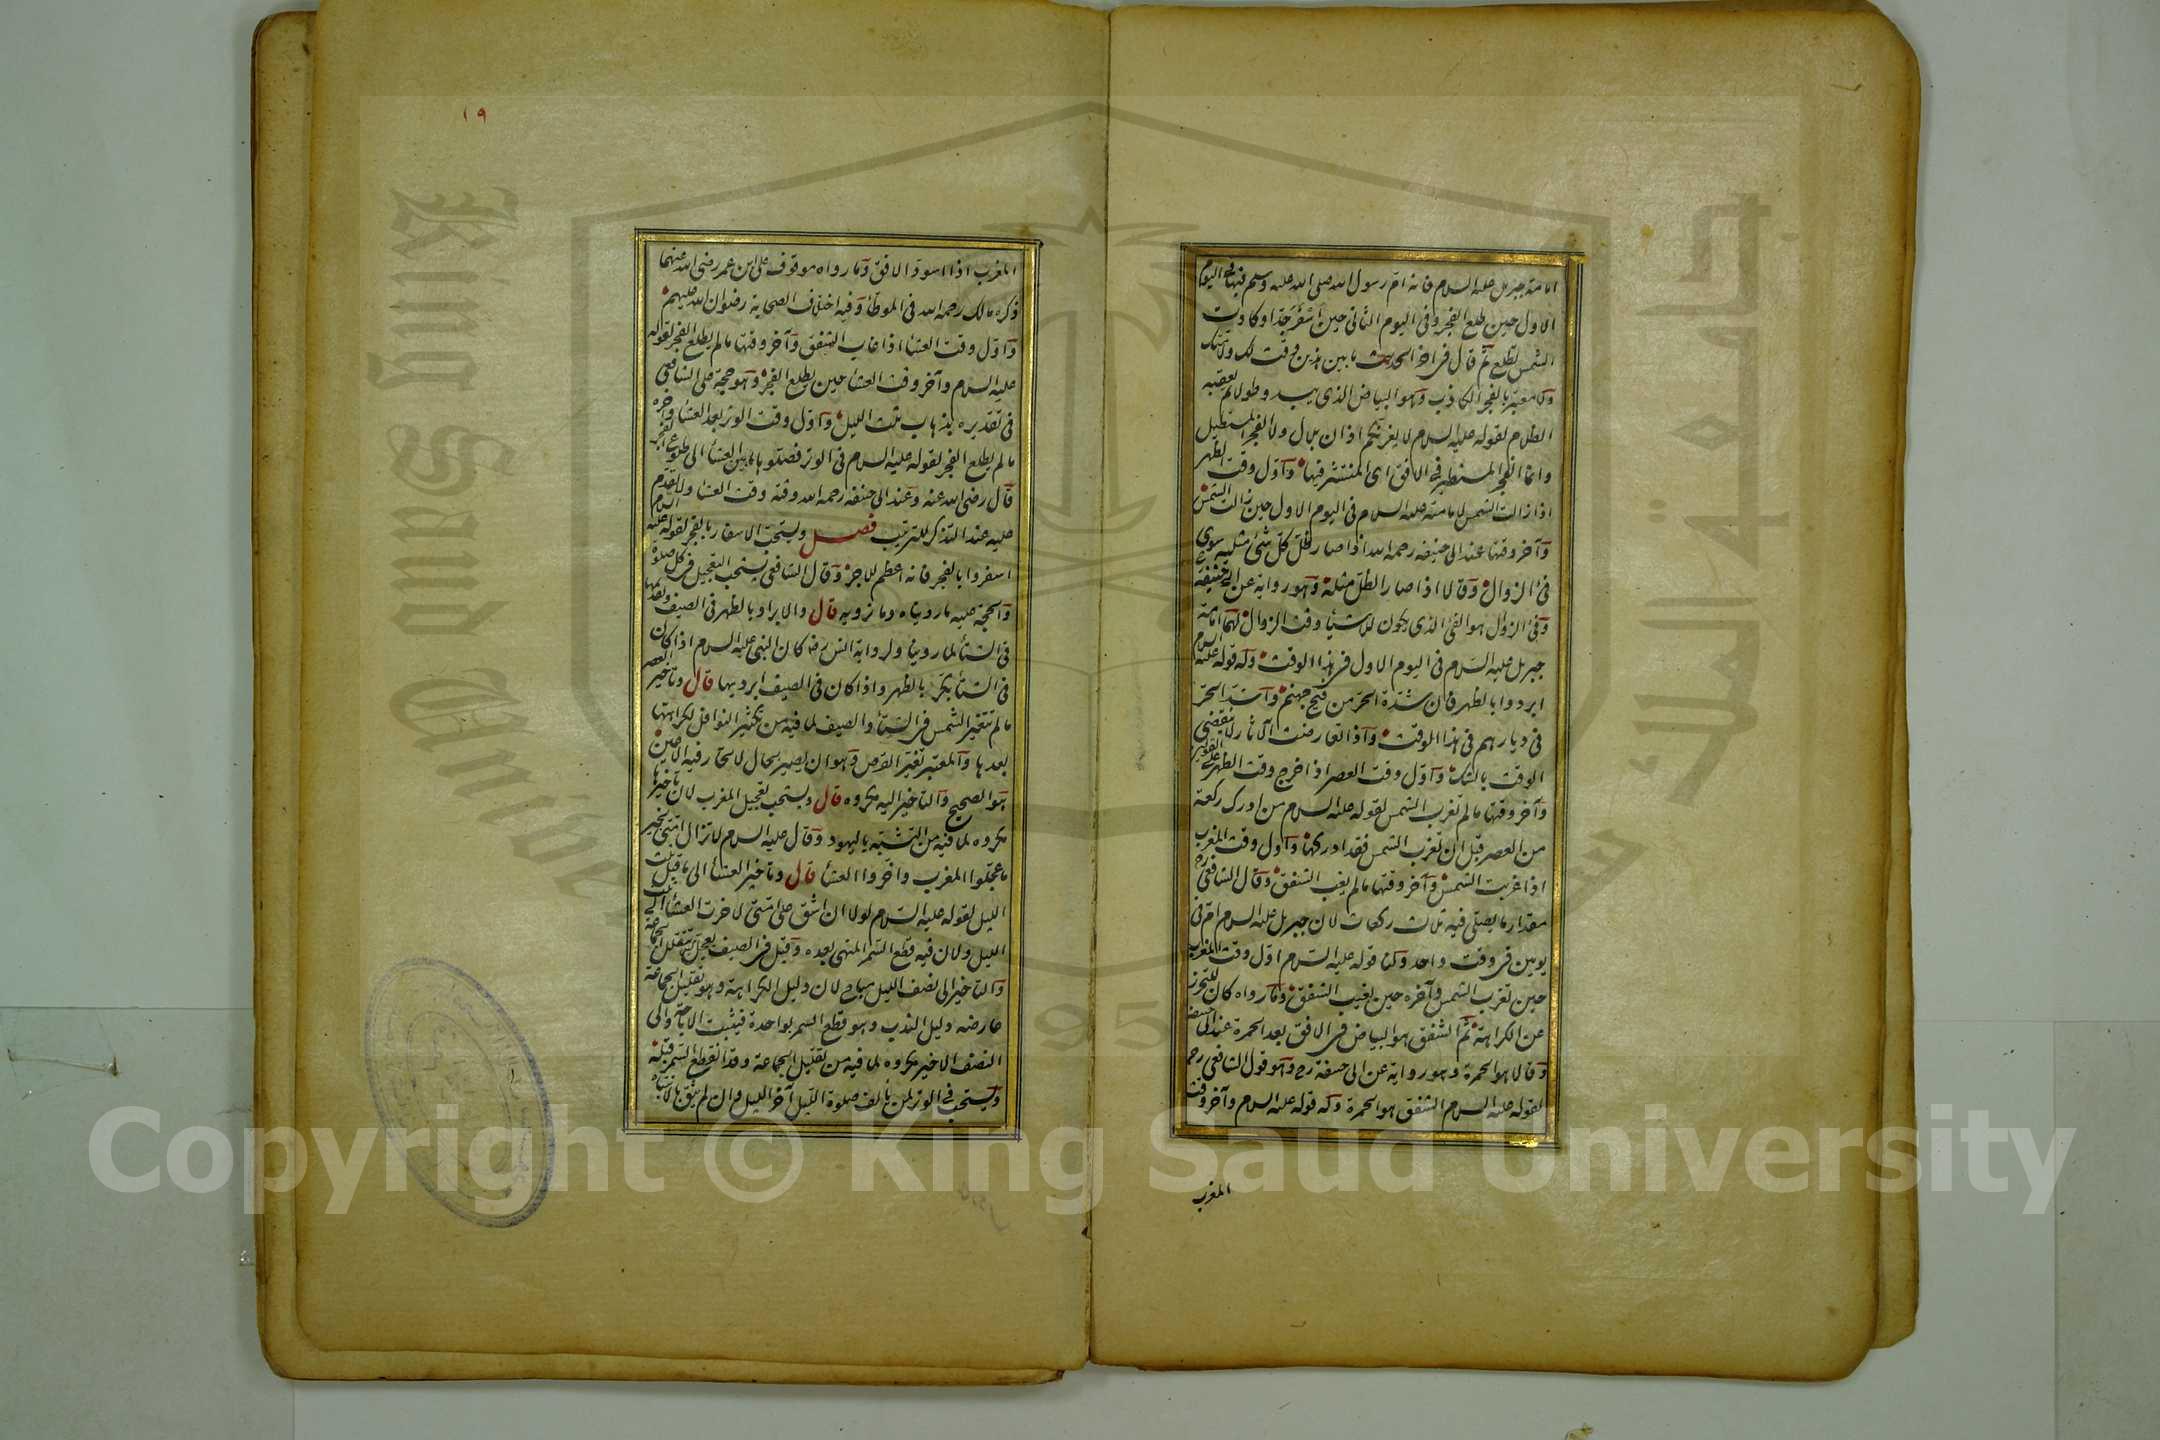 امامة جبريل عليه السلام فانه امّ رسول الله صلى الله عليه وسلم فيها فى اليوم
الاول حين طلع الفجر وفى اليوم الثانى حين اسفر جدّا وكادت
الشمس تطلع ثم قال فى آخر الحديث ما بين هذين وقت لك ولامتك
ولا معتبر بالفجر الكاذب وهو البياض الذى يبدو طولا ثم يعقبه
الظلام لقوله عليه السلام لا يغرنكم اذان بلال ولا الفجر المستطيل
وانما الفجر المستطير فى الافق اى المنتشر فيها واوّل وقت الظهر
اذا زالت الشمس لامامته عليه السلام فى اليوم الاول حين زالت الشمس
وآخر وقتها عند ابى حنيفه رحمه الله اذا صار ظلّ كلّ شئ مثليه سوى
فئ الزوال وقالا اذا صار الظلّ مثله وهو رواية عن ابى حنيفة
وفئ الزوال هو الفئ الذى يكون للاشياء وقت الزوال لهما امامة
جبريل عليه السلام فى اليوم الاول فى هذا الوقت وله قوله عليه السلام
ابردوا بالظهر فان شدّة الحرّ من فيح جهنم واشدّ الحرّ
فى ديارهم فى هذا الوقت واذا تعارضت الآثار لا ينقضى
الوقت بالشك واوّل وقت العصر اذا خرج وقت الظهر على القولين
وآخر وقتها ما لم تغرب الشمس لقوله عليه السلام من ادرك ركعة
من العصر قبل ان تغرب الشمس فقد ادركها واول وقت المغرب
اذا غربت الشمس وآخر وقتها ما لم يغب الشفق وقال الشافعى رح
مقدار ما يصلّى فيه ثلاث ركعات لان جبريل عليه السلام امّ فى
يومين فى وقت واحد ولنا قوله عليه السلام اوّل وقت المغرب
حين تغرب الشمس وآخره حين يغيب الشفق وما رواه كان للتحرز
عن الكراهة ثمّ الشفق هو البياض فى الافق بعد الحمرة عند ابى حنيفة
وقالا هو الحمرة وهو رواية عن ابى حنيفة رح وهو قول الشافعى رحمه
لقوله عليه السلام الشفق هو الحمرة وله قوله عليه السلام وآخر وقت
المغرب
١٩
المغرب اذا اسودّ الافق وما رواه موقوف على ابن عمر رضى الله عنهما
ذكره مالك رحمه الله فى الموطّأ وفيه اختلاف الصحابة رضوان الله عليهم
واوّل وقت العشا اذا غاب الشفق وآخر وقتها ما لم يطلع الفجر لقوله
عليه السلام وآخر وقت العشا حين يطلع الفجر وهو حجة على الشافعى
فى تقديره بذهاب ثلث الليل واوّل وقت الوتر بعد العشا وآخره
ما لم يطلع الفجر لقوله عليه السلام فى الوتر فصلّوها ما بين العشا الى طلوع الفجر
قال رضى الله عنه وعند ابى حنيفه رحمه الله وقته وقت العشا ولا يقدّم
عليه عند التذكر للترتيب فصل ويستحبّ الاسفار بالفجر لقوله عليه السلام
اسفروا بالفجر فانه اعظم للاجر وقال الشافعى يستحب التعجيل فى كل صلوة
والحجة عليه ما رويناه وما نرويه قال والابراد بالظهر فى الصيف وتقديمها
فى الشتأ لما روينا ولرواية انس رضه كان النبى عليه السلام اذا كان
فى الشتأ بكّر بالظهر واذا كان فى الصيف ابرد بها قال وتأخير العصر
ما لم تتغير الشمس فى الشتأ والصيف لما فيه من تكثير النوافل لكراهتها
بعدها والمعتبر تغيّر القرص وهو ان يصير بحال لا تحار فيه الاعين
هو الصحيح والتأخير اليه مكروه قال ويستحب تعجيل المغرب لان تأخيرها
مكروه لما فيه من التشبّه باليهود وقال عليه السلام لا تزال امّتى بخير
ما عجّلوا المغرب واخّروا العشأ قال وتأخير العشأ الى ما قبل ثلث
الليل لقوله عليه السّلام لولا ان اشقّ على امّتى لاخرت العشأ الى ثلث
الليل ولان فيه قطع السّمر المنهى بعده وقيل فى الصيف يعجل كيلا تتقلل الجماعة
والتأخير الى نصف الليل مباح لان دليل الكراهة وهو تقليل الجماعة
عارضه دليل الندب وهو قطع السمر بواحدة فيثبت الاباحة والى
النصف الاخير مكروه لما فيه من تقليل الجماعة وقد انقطع السّمر قبله
ويستحب فى الوتر لمن يألف صلوة الليل آخر الليل وان لم يثق بالانتباه
King Saud University
Copyright © King Saud University